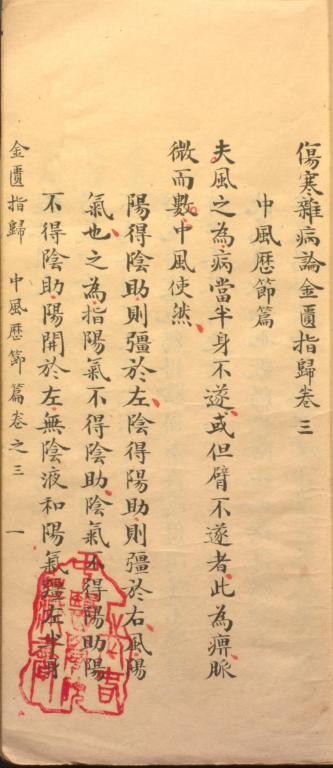 傷寒雜病論金匱指歸卷三
中風歷節篇
夫風之為病當半身不遂或但臂不遂者此為痹脈
微而數中風使然
陽得陰助則彊於左陰得陽助則彊於右風陽
氣也之為指陽氣不得陰助陰氣不得陽助陽
不得陰助陽開於左無陰液和陽氣彊左半身
金匱指歸 中風歷節篇卷之三 一